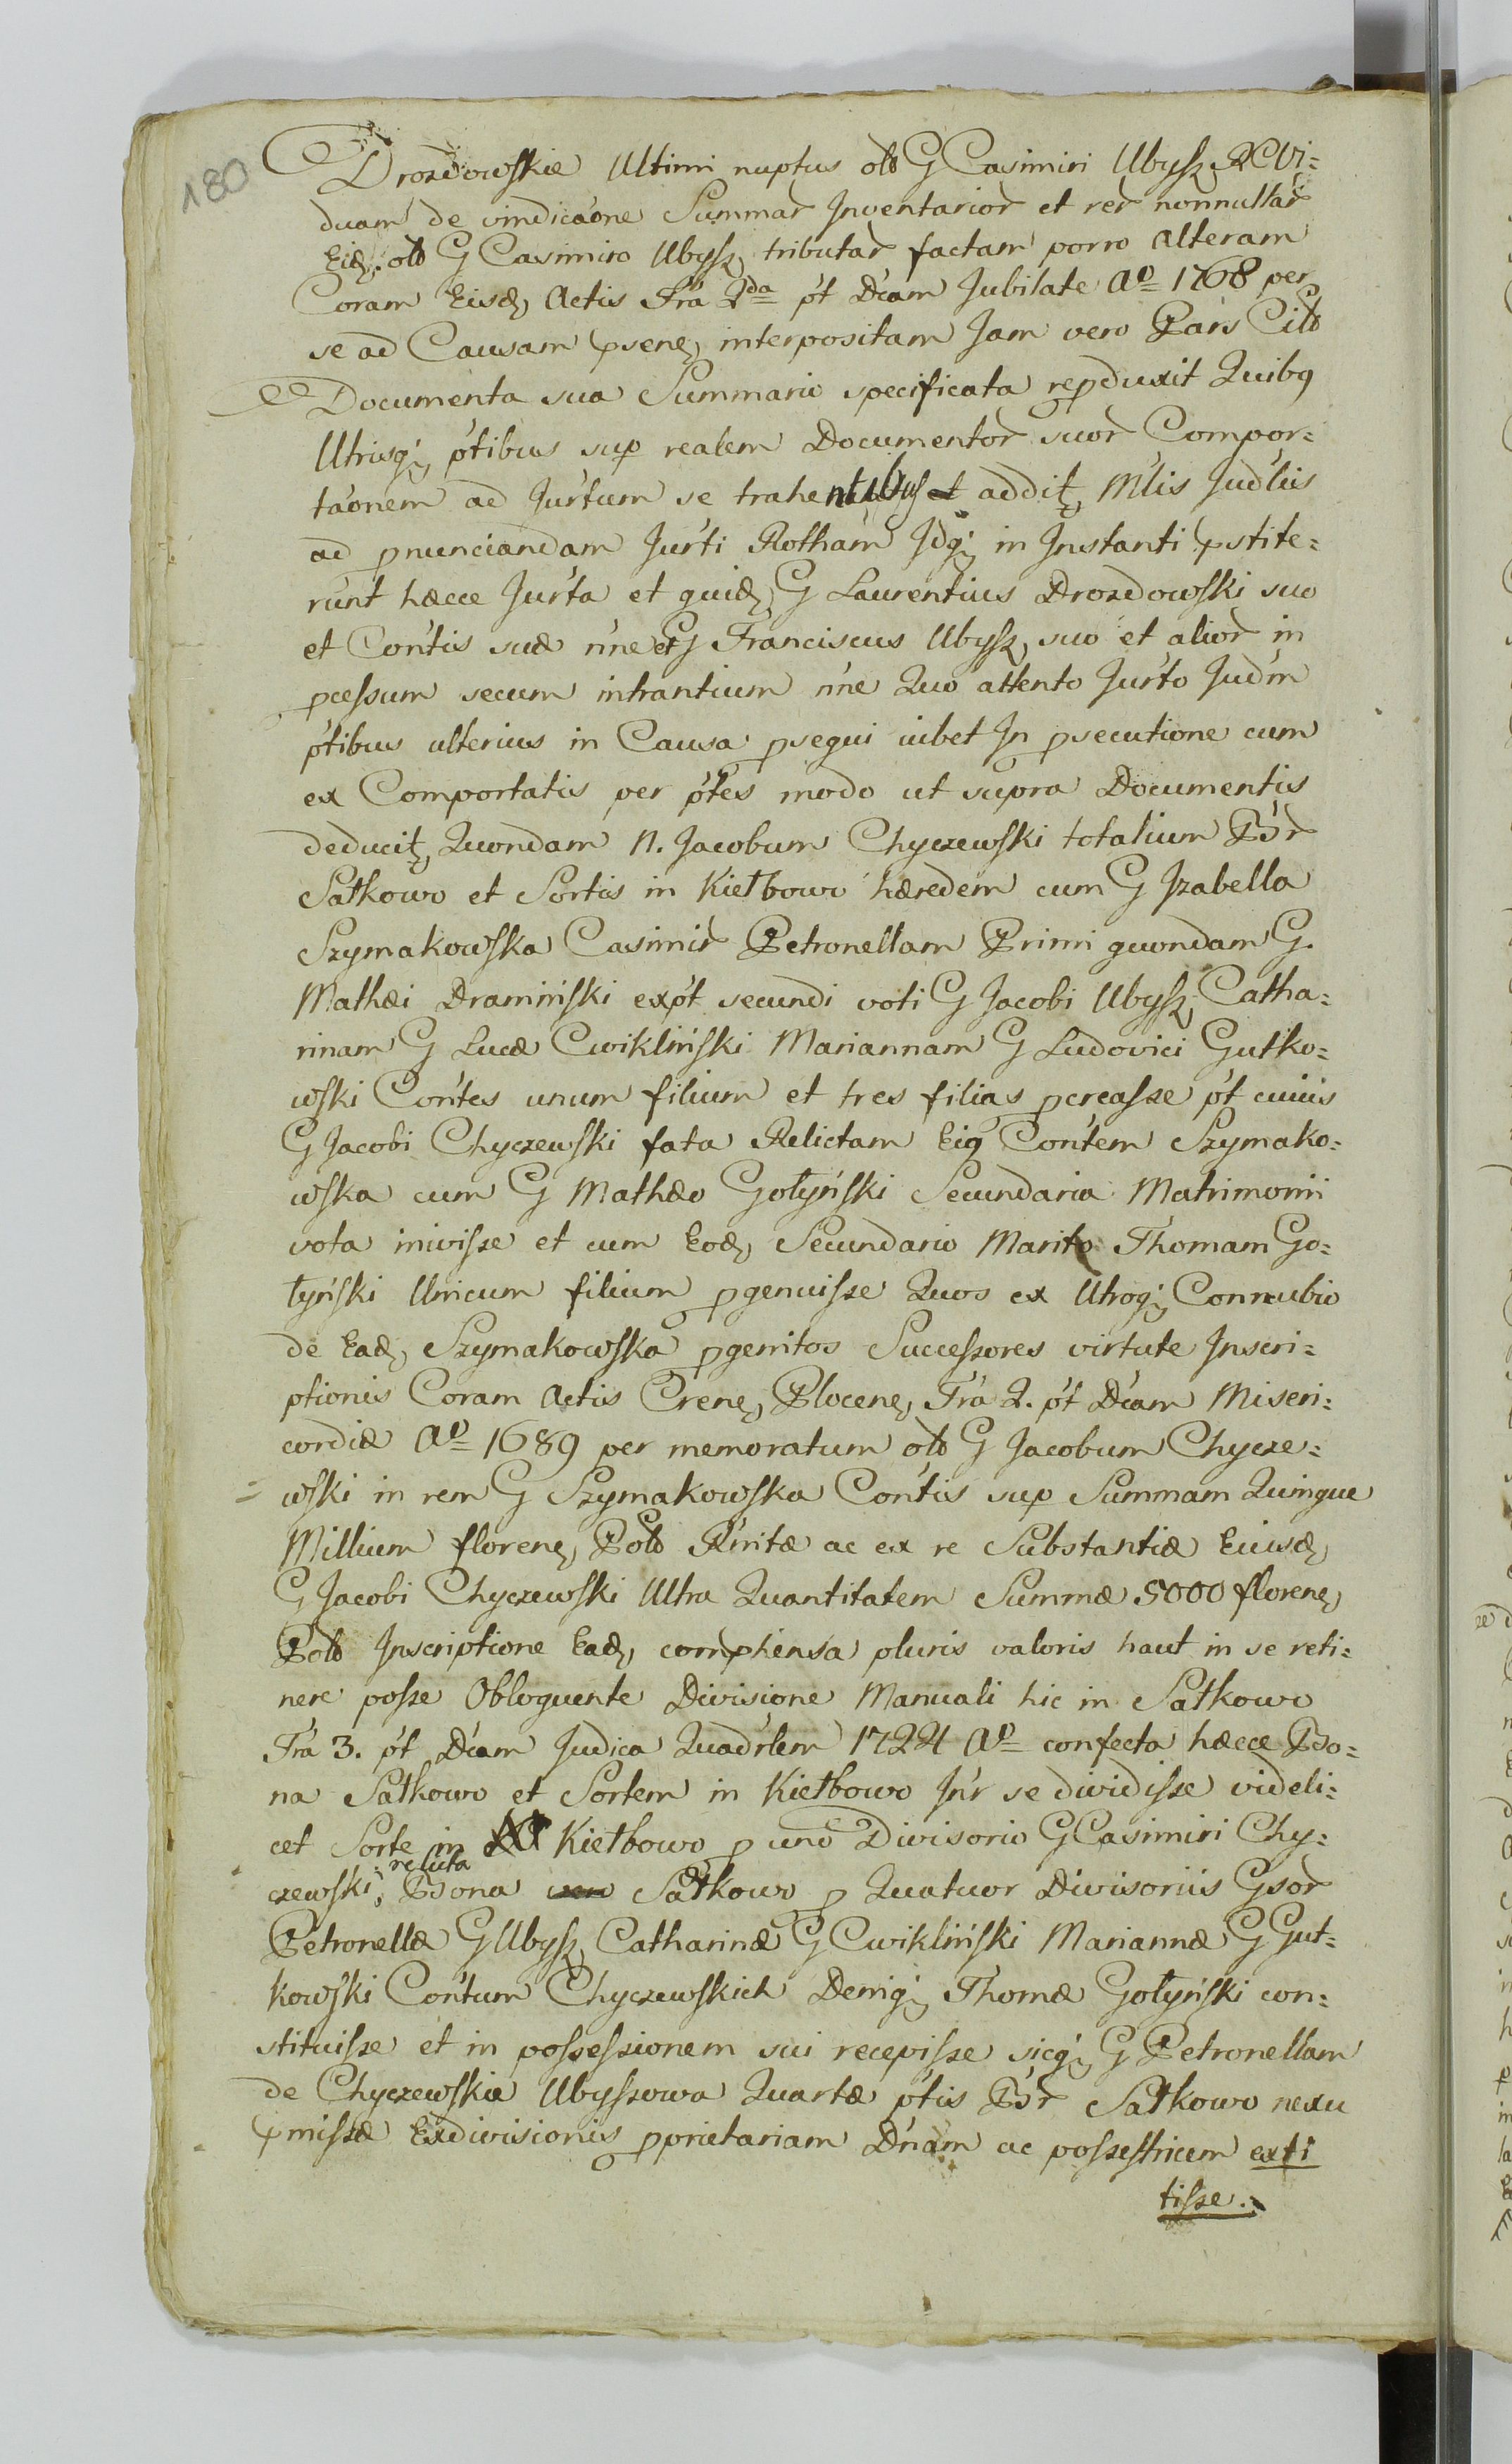 180
Drozdowskie Ultimi nuptus olb G Casimiri Ubysz RC Vi=
duam de vindicaóne Summar Inventarior et rer nonnullar
Eid. olb G Casimiro Ubysz, tributar factam porro alteram
Coram Eisd, Actis Fra 2da pt Dcam Jubilate Ao 1768 per
se ad Causam psene, interpositam Jam vero Pars Citb
Documenta sua Summario specificata repduxit Quibq
Utrisq; ptibus sup realem Documentor suor Compor=
taónem ad Jurtum se trahentibus et addit, Mlis Judlis
ad pnunciandam Jurti Rotham Idq; in Instanti pstite=
runt hæcce Jurta et quid, G Laurentius Drozdowski suo
et Contis suæ nne et G Franciscus Ubysz, suo et alior in
pcessum secum intrantium nne Quo attento Jurto Judm
ptibus ulterius in Causa psequi iubet In psecutione cum
ex Comportatis per ptes modo ut supra Documentis
deducit, Quondam N. Jacobum Chyczewski totalium Bor
Sałkowo et Sortis in Kiełbowo hæredem cum G Izabella
Szymakowska Casimir Petronellam Primi quondam G.
Mathæi Dramiński expt secundi voti G Jacobi Ubysz, Catha=
rinam G Lucæ Cwikliński Mariannam G Ludovici Gutko=
wski Contes unum filium et tres filias pcreasse pt cuius
G Jacobi Chyczewski fata Relictam Eiq Contem Szymako=
wska cum G Mathæo Gołyński Secundaria Matrimonii
vota inivisse et cum Eod, Secundario Marito Thomam Go=
łyński Unicum filium pgenuisse Quos ex Utroq; Connubio
de Ead, Szymakowska pgenitos Successores virtute Inscri=
ptionis Coram Actis Crene, Plocene, Fra 2. pt Dcam Miseri=
cordiæ Ao 1689 per memoratum olb G Jacobum Chycze=
wski in rem G Szymakowska Contis sup Summam Quinque
Millium florene, Polb Rmitæ ac ex re Substantiæ Eiusd,
G Jacobi Chyczewski Ultra Quantitatem Summæ 5000 florene,
Polb Inscriptione Ead, comphensa pluris valoris haut in se reti=
nere posse Obloquente Divisione Manuali hic in Sałkowo
Fra 3. pt Dcam Judica Quadrlem 1724 Ao confecta hæcce Bo=
na Sałkowo et Sortem in Kiełbowo Inr se dividisse videli=
cet Sorte in Kiełbowo p uno Divisorio G Casimiri Chy=
czewski; reluta Bona vero Sałkowo p Quatuor Divisoriis Gsor
Petronellæ G Ubysz, Catharinæ G Cwikliński Mariannæ G Gut=
kowski Contum Chyczewskich Deniq; Thomæ Gołyński con=
stituisse et in possessionem sui recepisse sicq; G Petronellam
de Chyczewskie Ubyszowa Quartæ ptis Bor Sałkowo nexu
pmissæ Exdivisionis pprietariam Dnam ac possestricem exti
tisse.